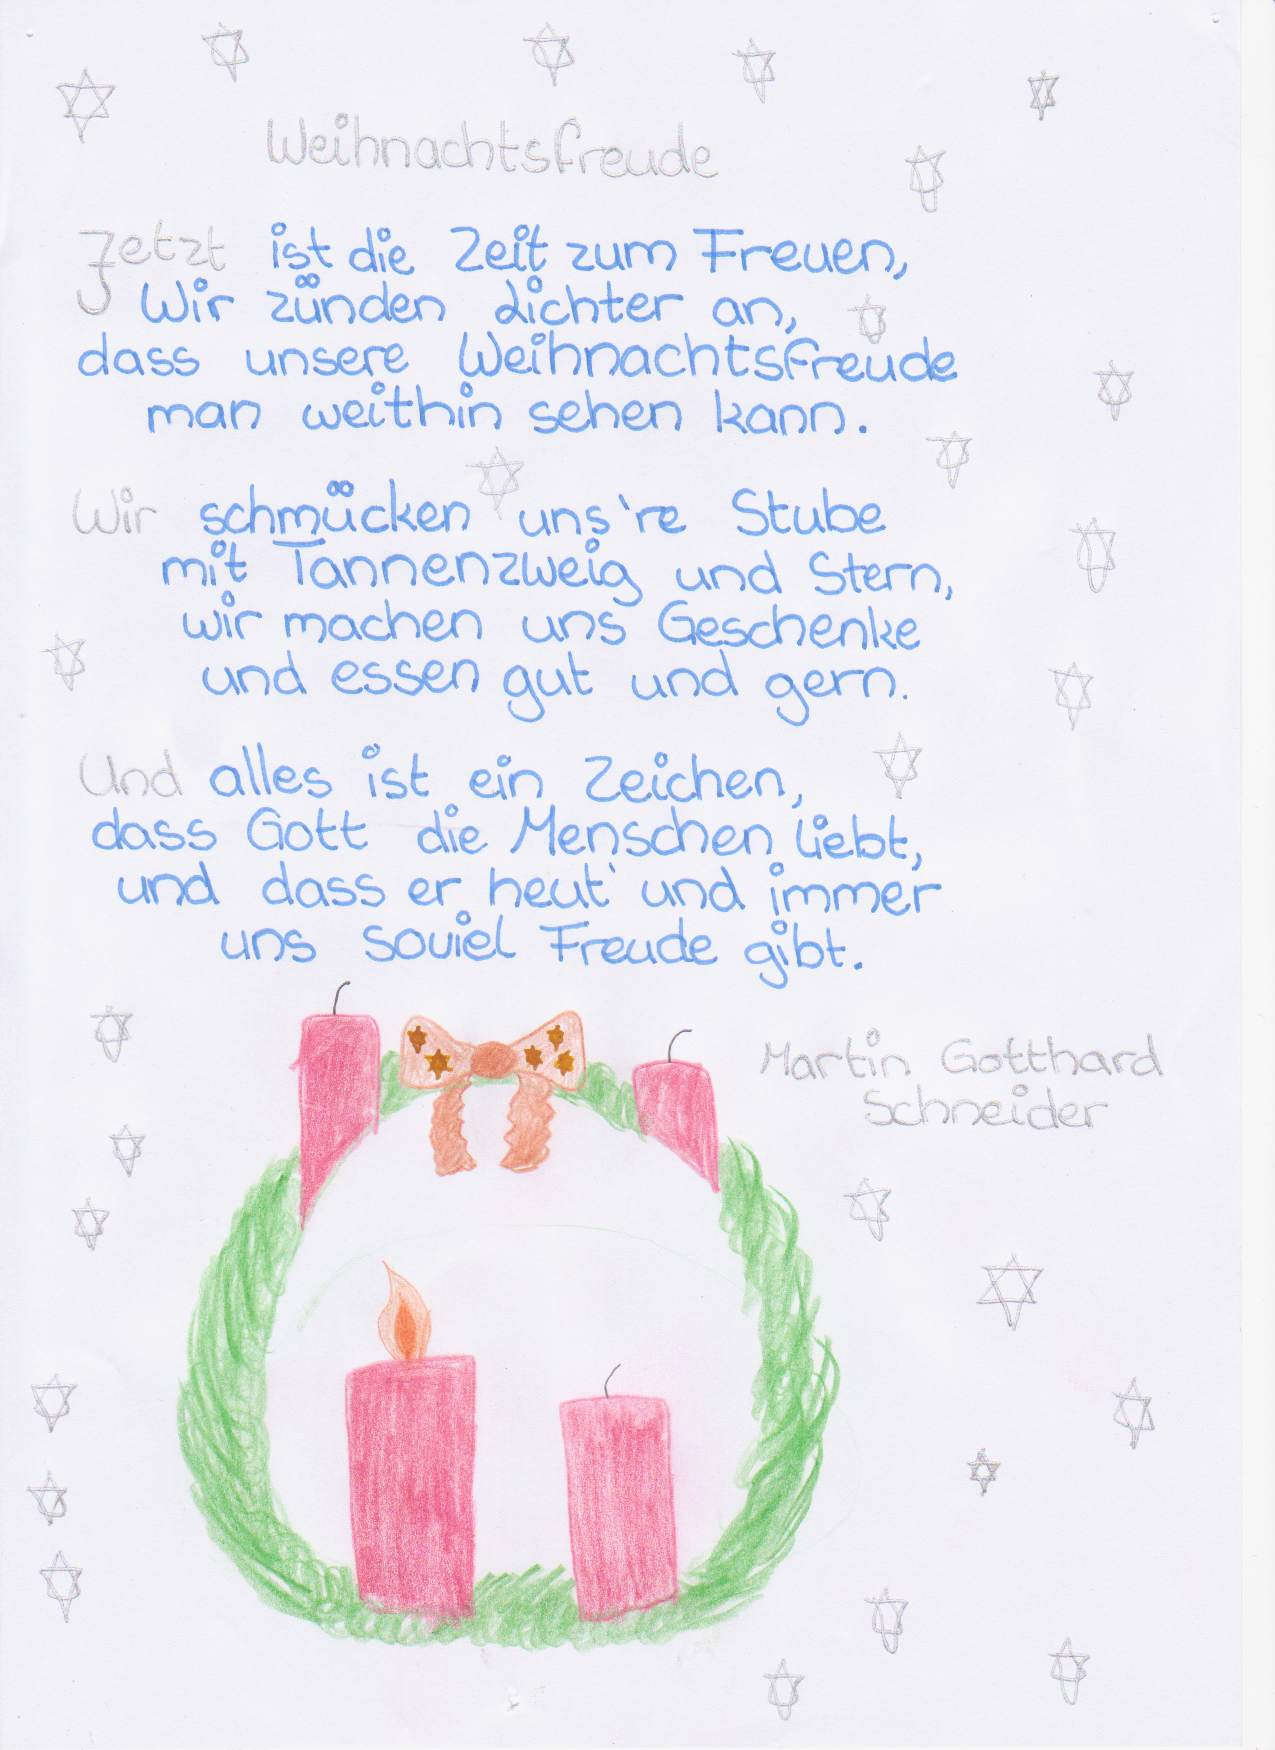 Weihnachtsfreude
Jetzt ist die Zeit zum Freuen,
Wir zünden Lichter an,
dass unsere Weihnachtsfreude
man weithin sehen kann.
Wir schmücken uns're Stube
mit Tannenzweig und Stern,
wir machen uns Geschenke
und essen gut und gern.
Und alles ist ein Zeichen,
dass Gott die Menschen liebt,
und dass er heut' und immer
uns soviel Freude gibt.
Martin Gotthard
Schneider